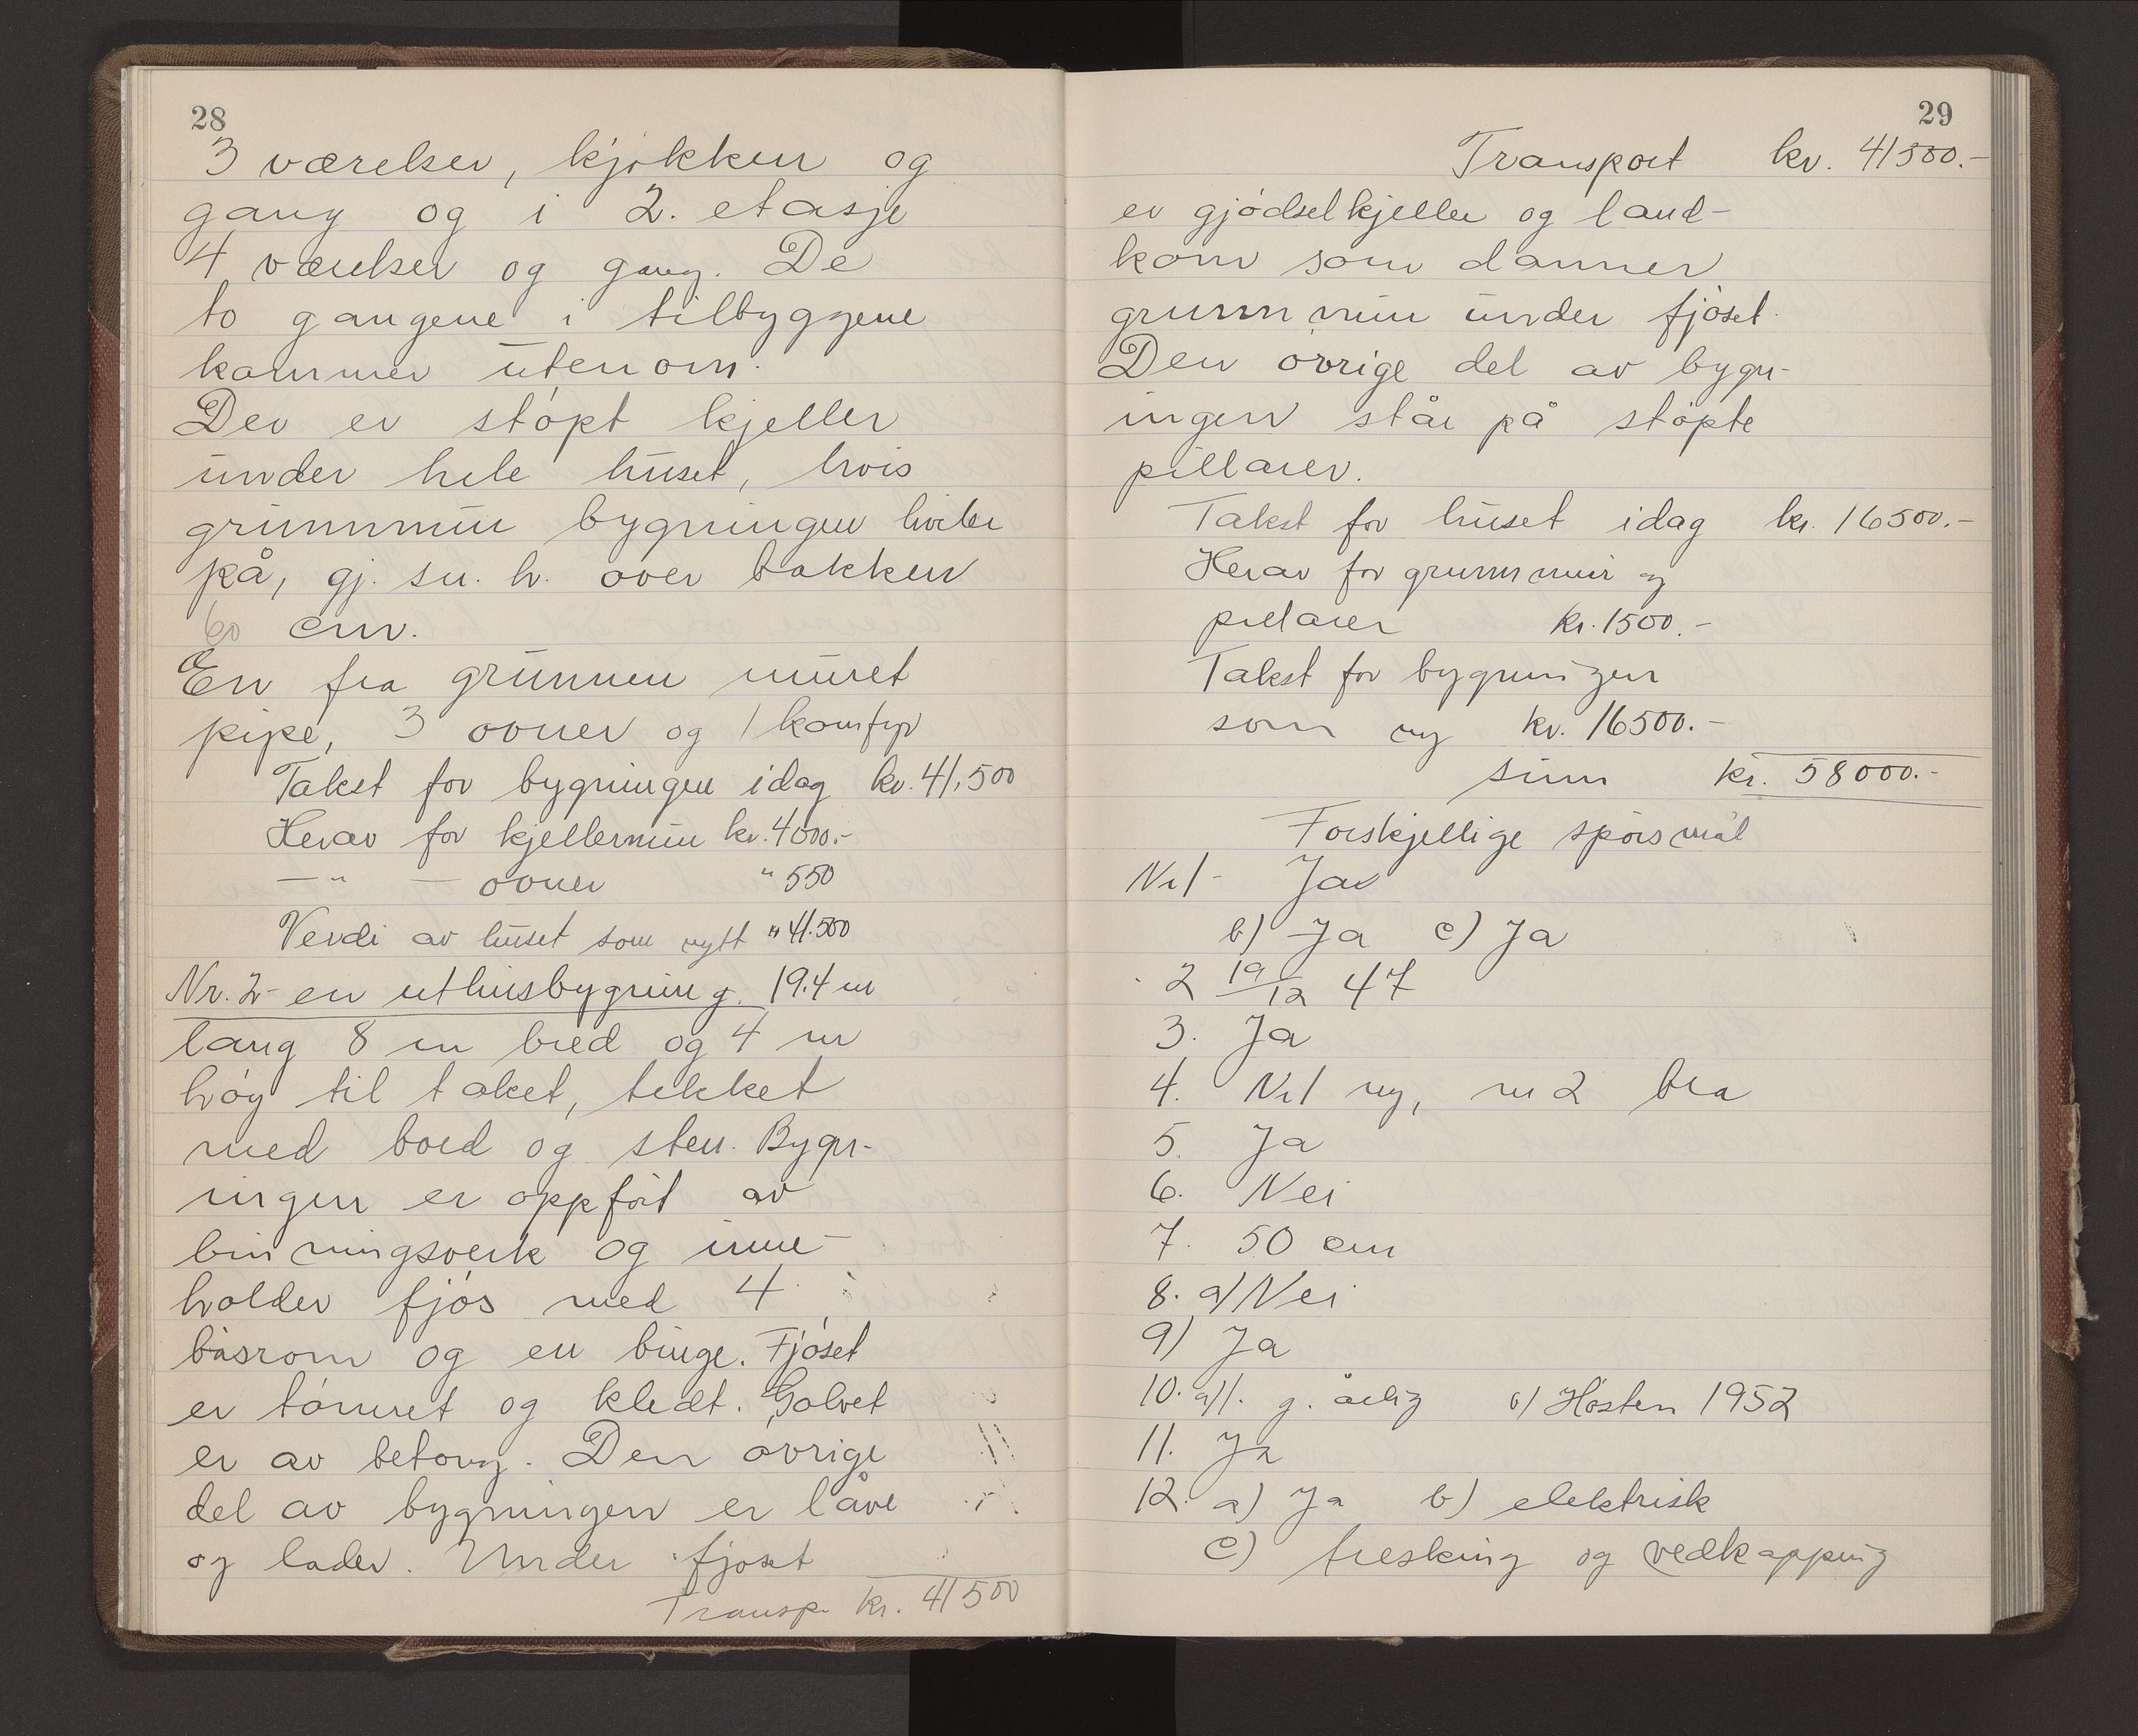 28
3 værelser, kjøkken og
gang og i 2. etasje
4 værelser og gang. De
to gangene i tilbyggene
kommer utenom.
Der er støpt kjeller
under hele huset, hvis
grunnmur bygningen hviler
på, gj. sn. h. over bakken
60 cm.
En fra grunnen muret
pipe, 3 ovner og 1 komfyr
Takst for bygningen idag kr. 41.500
Herav for kjellermur kr. 4000.-
— " — ovner " 550
Verdi av huset som nytt " 41.500
Nr. 2 - en uthusbygning. 19.4 m
lang 8 m bred og 4 m
høy til taket, tekket
med bord og sten. Bygn-
ingen er oppført av
binningsverk og inne-
holder fjøs med 4
båsrom og en binge. Fjøset
er tømret og kledt. Golvet
er av betong. Den øvrige
del av bygningen er låve
og lader. Under fjøset
Transp. kr. 41500
29
Transport kr. 41500.-
er gjødselkjeller og land-
kom som danner
grunnmur under fjøset.
Den øvrige del av bygn-
ingen står på støpte
pillarer.
Takst for huset idag kr. 16500.-
Herav for grunnmur og
pillarer kr. 1500.-
Takst for bygningen
som ny kr. 16500.-
sum kr. 58000.-
Forskjellige spørsmål
Nr 1 - Ja
b) Ja c) Ja
2 19/12 47
3. Ja
4. Nr 1 ny, nr 2 bra
5. Ja
6. Nei
7. 50 cm
8. a) Nei
9) Ja
10. a) 1. g. årlig b) Høsten 1952
11. Ja
12. a) Ja b) elektrisk
c) tresking og vedkapping